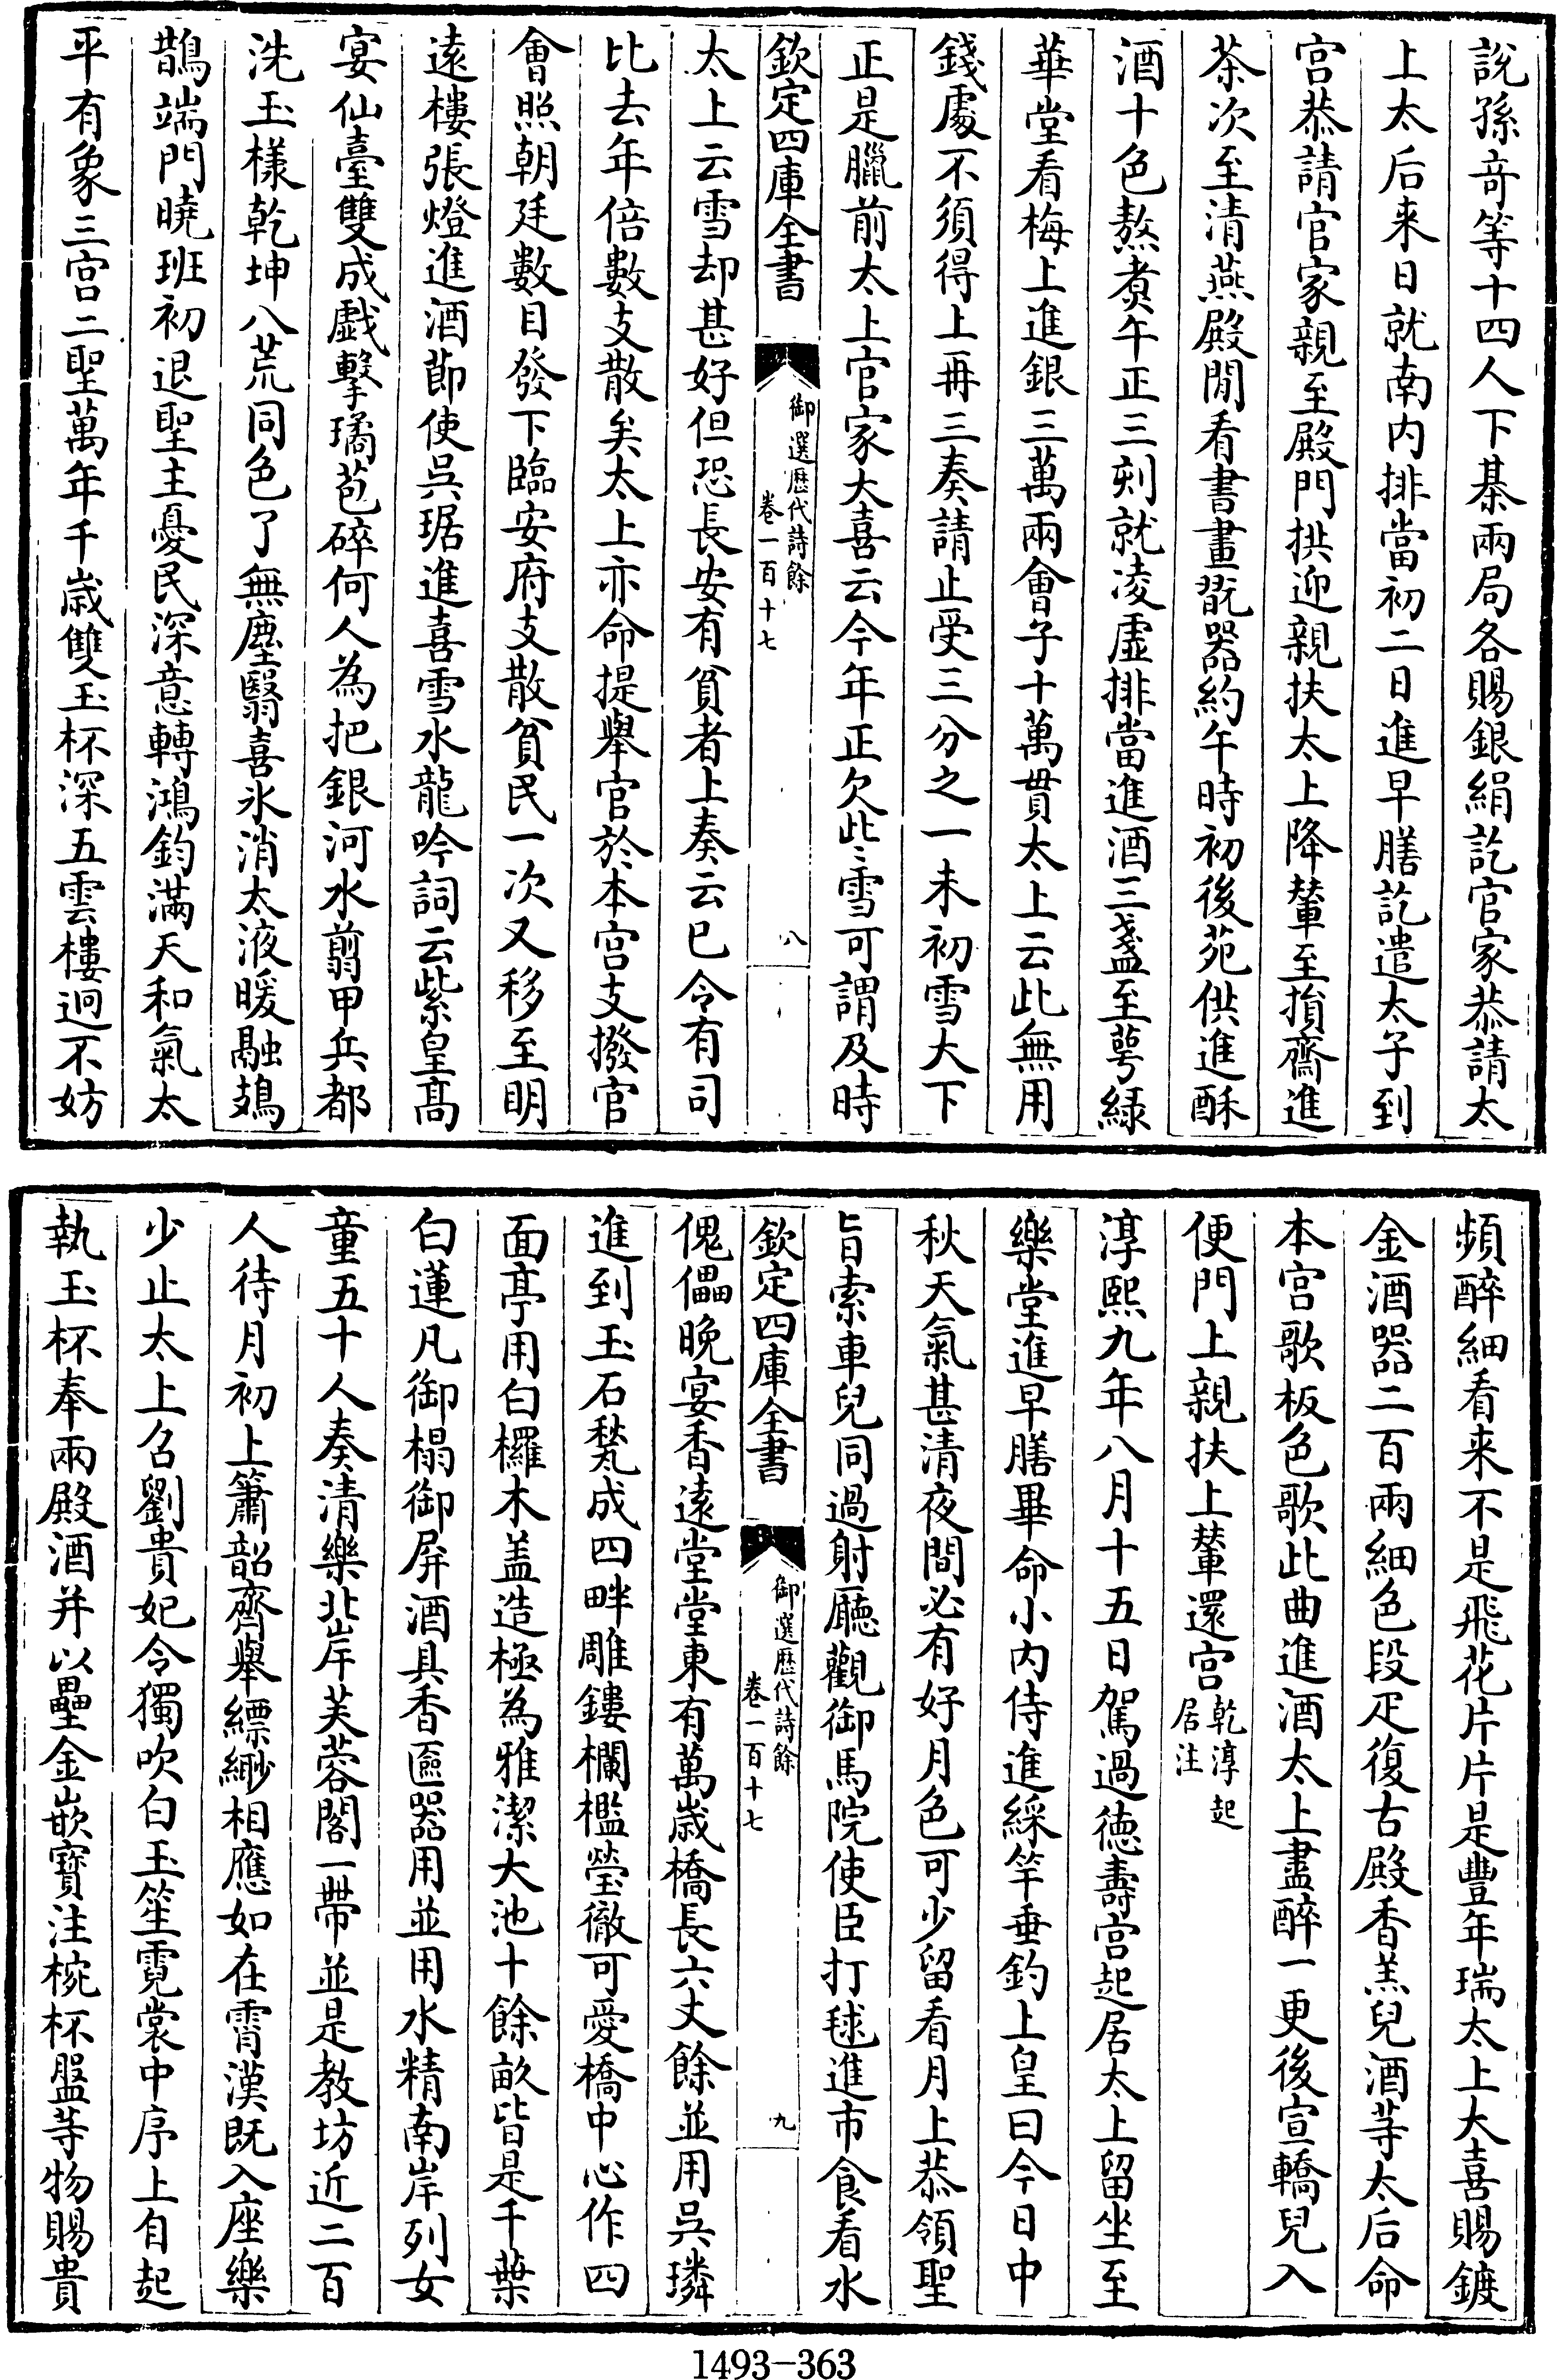 說孫竒等十四人下棊兩局各賜銀絹訖官家恭請太
上太后来日就南内排當初二日進早膳訖遣太子到
宫恭請官家親至殿門拱迎親扶太上降輦至損齋進
茶次至清燕殿閒看書畫翫器約午時初後苑供進酥
酒十色熬煑午正三刻就凌虚排當進酒三盞至萼緑
華堂看梅上進銀三萬兩㑹子十萬貫太上云此無用
錢處不須得上再三奏請止受三分之一未初雪大下
正是臘前太上官家大喜云今年正欠此雪可謂及時
欽定四庫全書
御選歴代詩餘
卷一百十七
八
太上云雪却甚好但恐長安有貧者上奏云已令有司
比去年倍數支散矣太上亦命提舉官於本宫支撥官
㑹照朝廷數目發下臨安府支散貧民一次又移至明
逺樓張燈進酒節使吳琚進喜雪水龍吟詞云紫皇髙
宴仙臺雙成戯擊璚苞碎何人為把銀河水翦甲兵都
洗玉樣乾坤八荒同色了無塵翳喜氷消太液暖融鳷
鵲端門曉班初退聖主憂民深意轉鴻鈞滿天和氣太
平有象三宫二聖萬年千歳雙玉杯深五雲樓迥不妨
頻醉細看来不是飛花片片是豐年瑞太上大喜賜鍍
金酒器二百兩細色段疋復古殿香羔兒酒等太后命
本宫歌板色歌此曲進酒太上盡醉一更後宣轎兒入
便門上親扶上輦還宫乾淳起
居注
淳熙九年八月十五日駕過徳壽宫起居太上留坐至
樂堂進早膳畢命小内侍進綵竿垂釣上皇曰今日中
秋天氣甚清夜間必有好月色可少留看月上恭領聖
旨索車兒同過射㕔觀御馬院使臣打毬進市食看水
欽定四庫全書
御選歴代詩餘
卷一百十七
九
傀儡晚宴香逺堂堂東有萬歳橋長六丈餘並用吳璘
進到玉石甃成四畔雕鏤欄檻瑩徹可愛橋中心作四
面亭用白欏木盖造極為雅潔大池十餘畝皆是千葉
白蓮凡御榻御屏酒具香匳器用並用水精南岸列女
童五十人奏清樂北岸芙蓉閣一帶並是教坊近二百
人待月初上簫韶齊舉縹緲相應如在霄漢既入座樂
少止太上召劉貴妃令獨吹白玉笙霓裳中序上自起
執玉杯奉兩殿酒并以壘金嵌寶注椀杯盤等物賜貴
1493-363